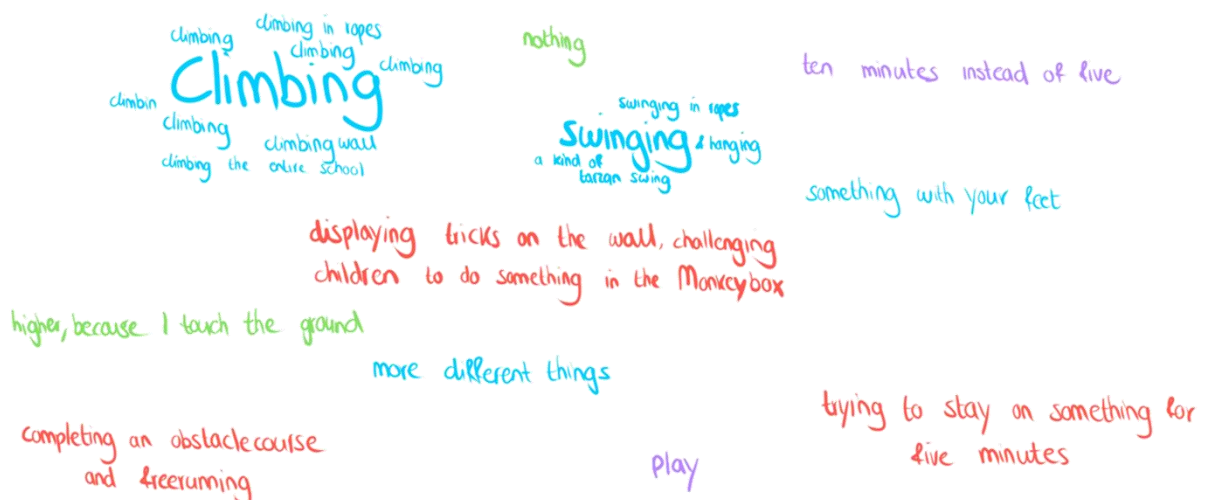 climbing
climbing in ropes
climbing
climbing
Climbing
climbin
climbing
climbing wall
climbing the entire school
nothing
ten minutes instead of five
swinging in ropes
swinging
& hanging
a kind of
tarzan swing
something with your feet
displaying tricks on the wall, challenging
children to do something in the Monkeybox
higher, because I touch the ground
more different things
trying to stay on something for
five minutes
completing an obstaclecourse
and freeruming
play